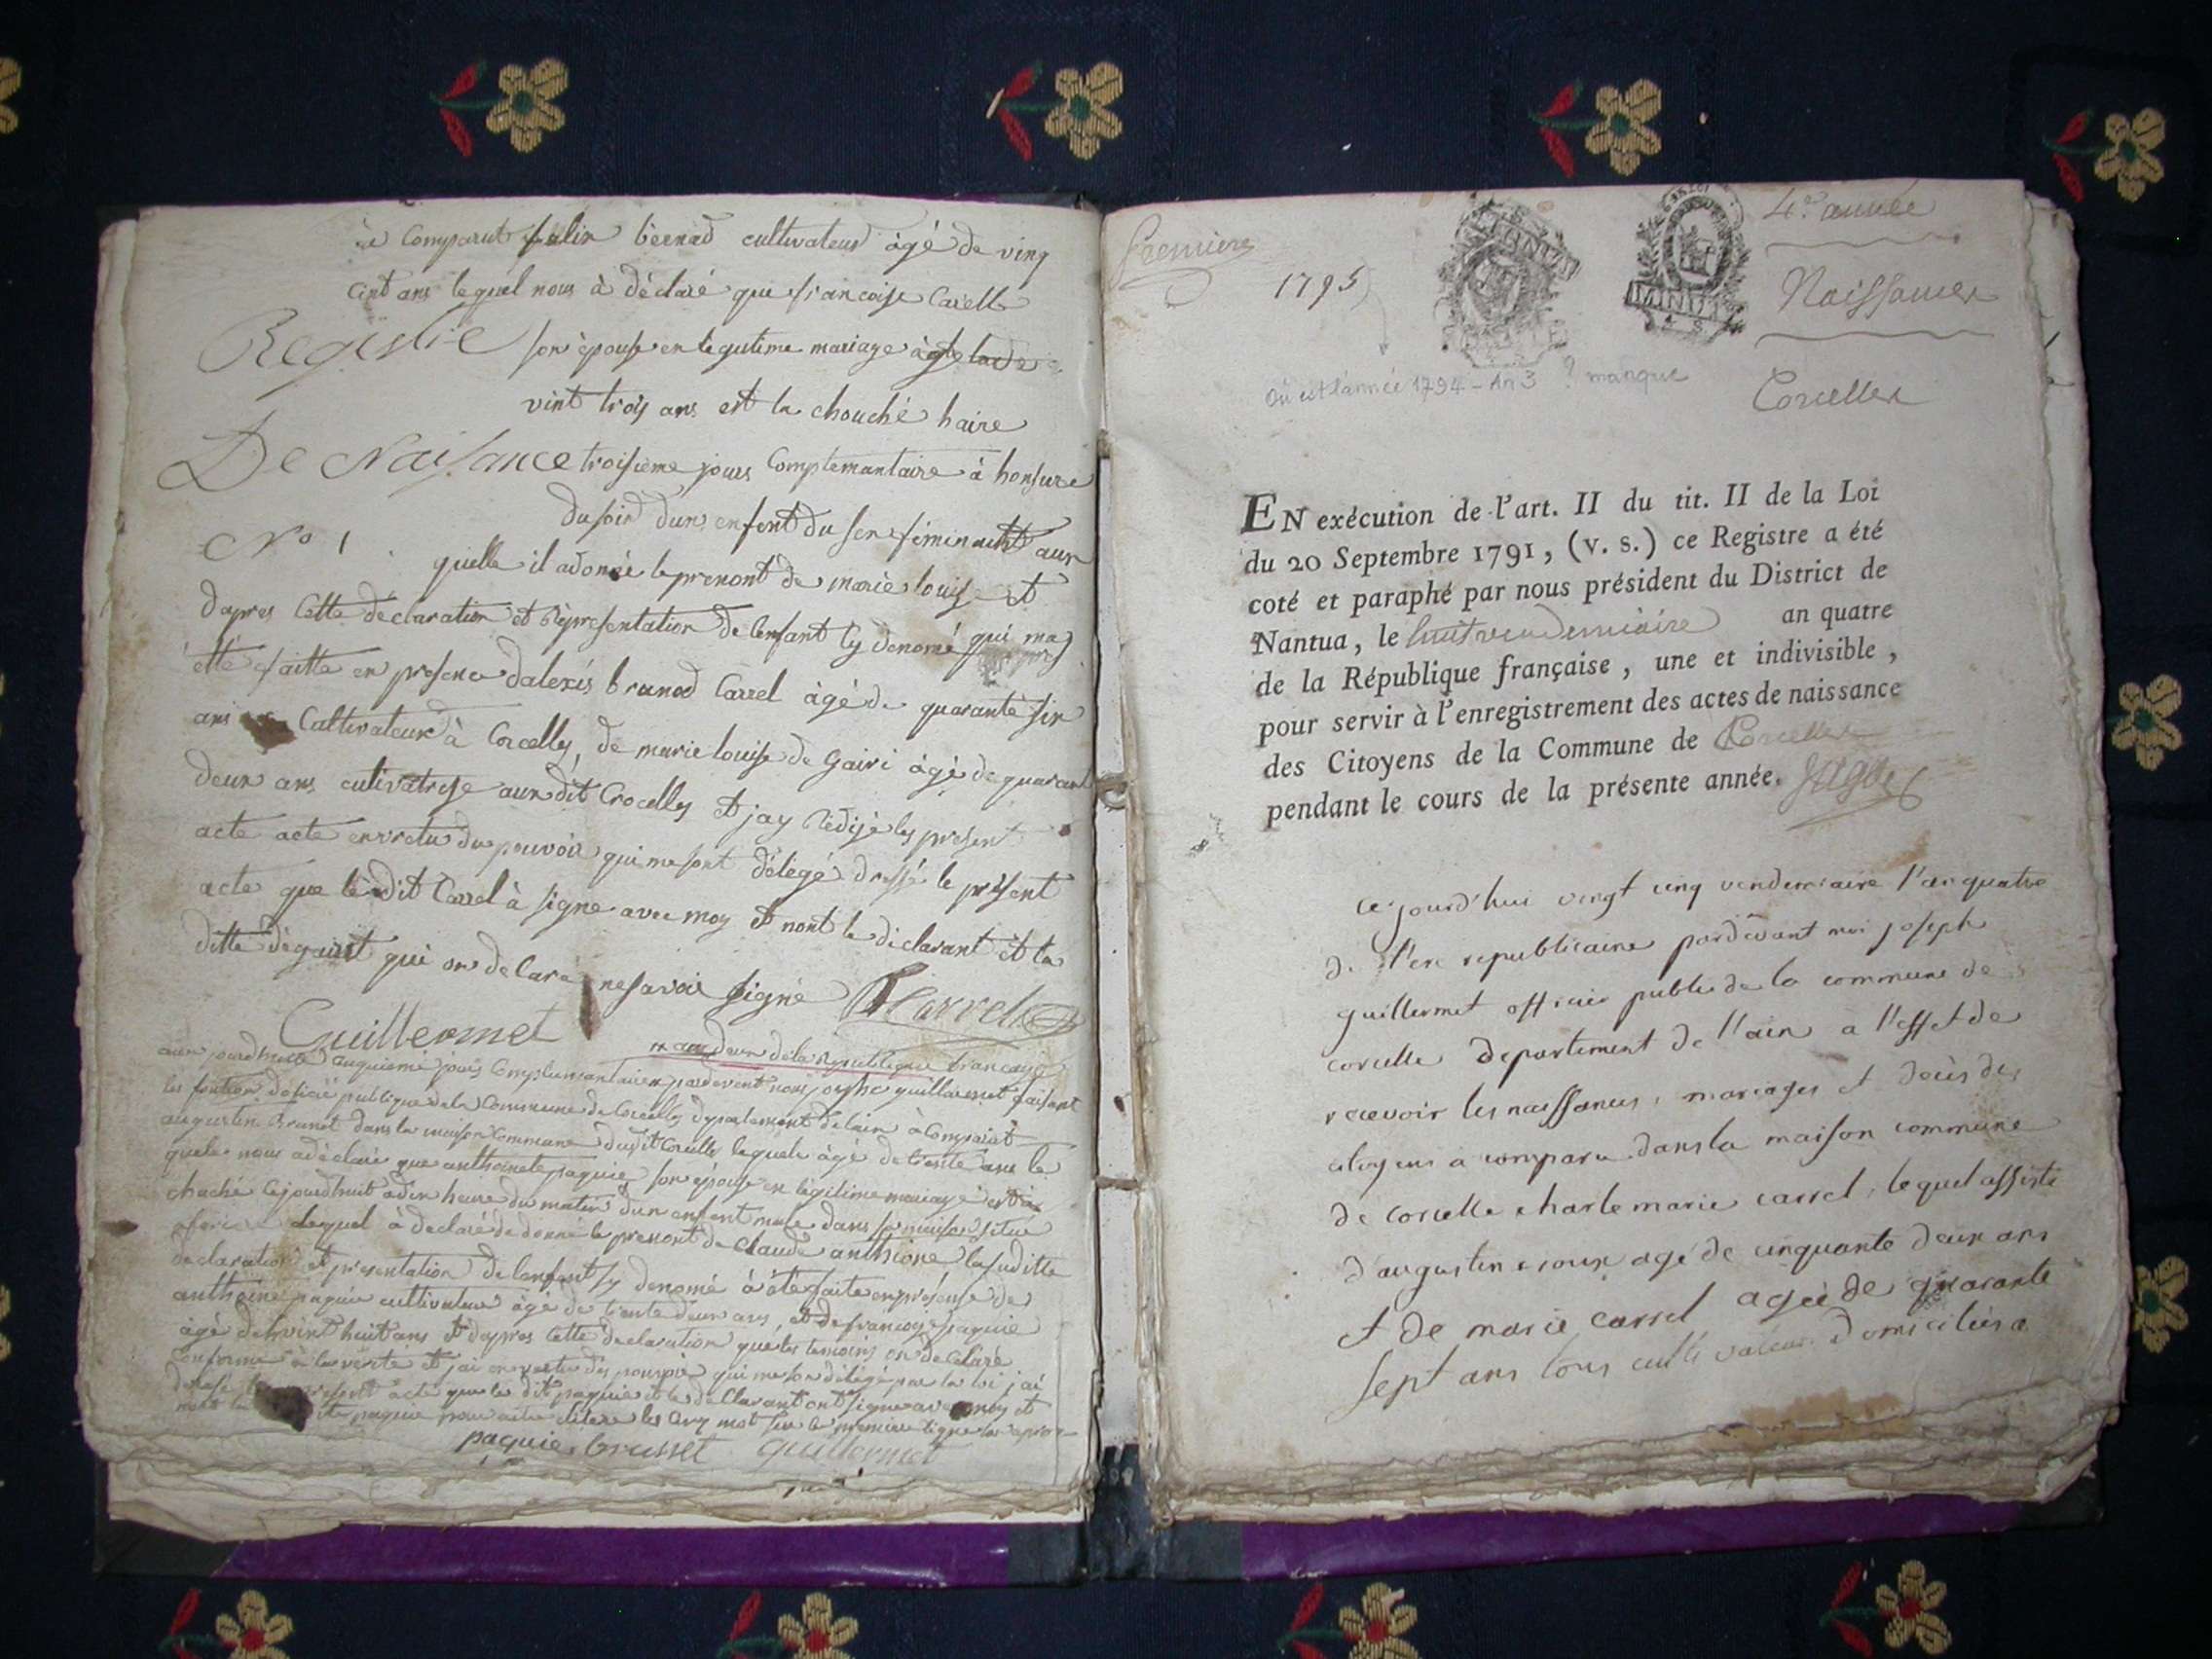 à Comparut felix bernad cultivateur àgé de vinq
cint ans lequel nous à déclaré que francoise Carell
Registre
son épouse en legutime mariage àgé
vint trois ans est la chouché haire
De Naisance
troisieme jours Complemantaire à honsure
du soir dun enfent du sex féminaint aux
No 1
quelle il adonée le prenont de marie louise et
dapres Cette declaration et Représentation de lenfant Cy denomé qui ma
etté faitte en presence dalexis brunod Carrel àgé de quarante six
ans Caltivateur à Corcelles, de marie louise de Gairi àgé de quarant
deux ans cultivatrise aux dit Crocelles et jay rédigé les present
acte acte en vretu du pouvoir qui me sont délégé dressé le présent
acte que le dit Carrel à signe avec moy et nont le diclarant et la
ditte dégairit qui on delare ne savoir signé Carrel
Guillermet
lan deux de la Republique francaise
aux jourdhuite Cinquiemé jours Complemantaire pardevent nous joseph guillairmet faisant
les fontion doficié publique de la Commune de Corcelles departemont de lain à Comparut
augustin Brunet dans la maison Commune dudit Corcelles lequele àgé de trante ans le
quele nous adéclaré que anthoinete paquie son épouse en légitime mariage est à
chaché Cejourdhuit à dix heure du matin dun enfent male dans sa maison situé
lequel à declaré de donné le prenont de Claude anthoine la suditte
declaration et presentation de lenfent Cy denomé à été faite en présense de
anthoine paquie cultivateur àgé de trante deux ans, et de francois paquie
àgé de vint huit ans et dapres cette declaration que les temoins on declaré
Conforme à la vérité et jai en vertu des pouvoir qui me son délégé par la loi jai
acte que le dit paquie et le déClarant ont signe avec moy et
paquie brunet guillermet
Premiere
1795
4e année
Naissances
Où est l'année 1794 - An 3 ? manque
Corcelles
EN exécution de l'art. II du tit. II de la Loi
du 20 Septembre 1791, (v. s.) ce Registre a été
coté et paraphé par nous président du District de
Nantua, le huit vendemiaire an quatre
de la République française, une et indivisible,
pour servir à l'enregistrement des actes de naissance
des Citoyens de la Commune de Corcelles
pendant le cours de la présente année.
Ce jourd'hui vingt cinq vendemiaire l'an quatre
de l'ere republicaine pardevant moi joseph
guillermet officier public de la commune de
corcelle departement de l'ain a l'effet de
recevoir les naissances, mariages et décès des
citoyens a comparu dans la maison commune
de corcelle charle marie carrel, lequel assisté
d'augustin roux agé de cinquante deux ans
et de marie carrel ageé de quarante
sept ans tous cultivateur domiciliés a